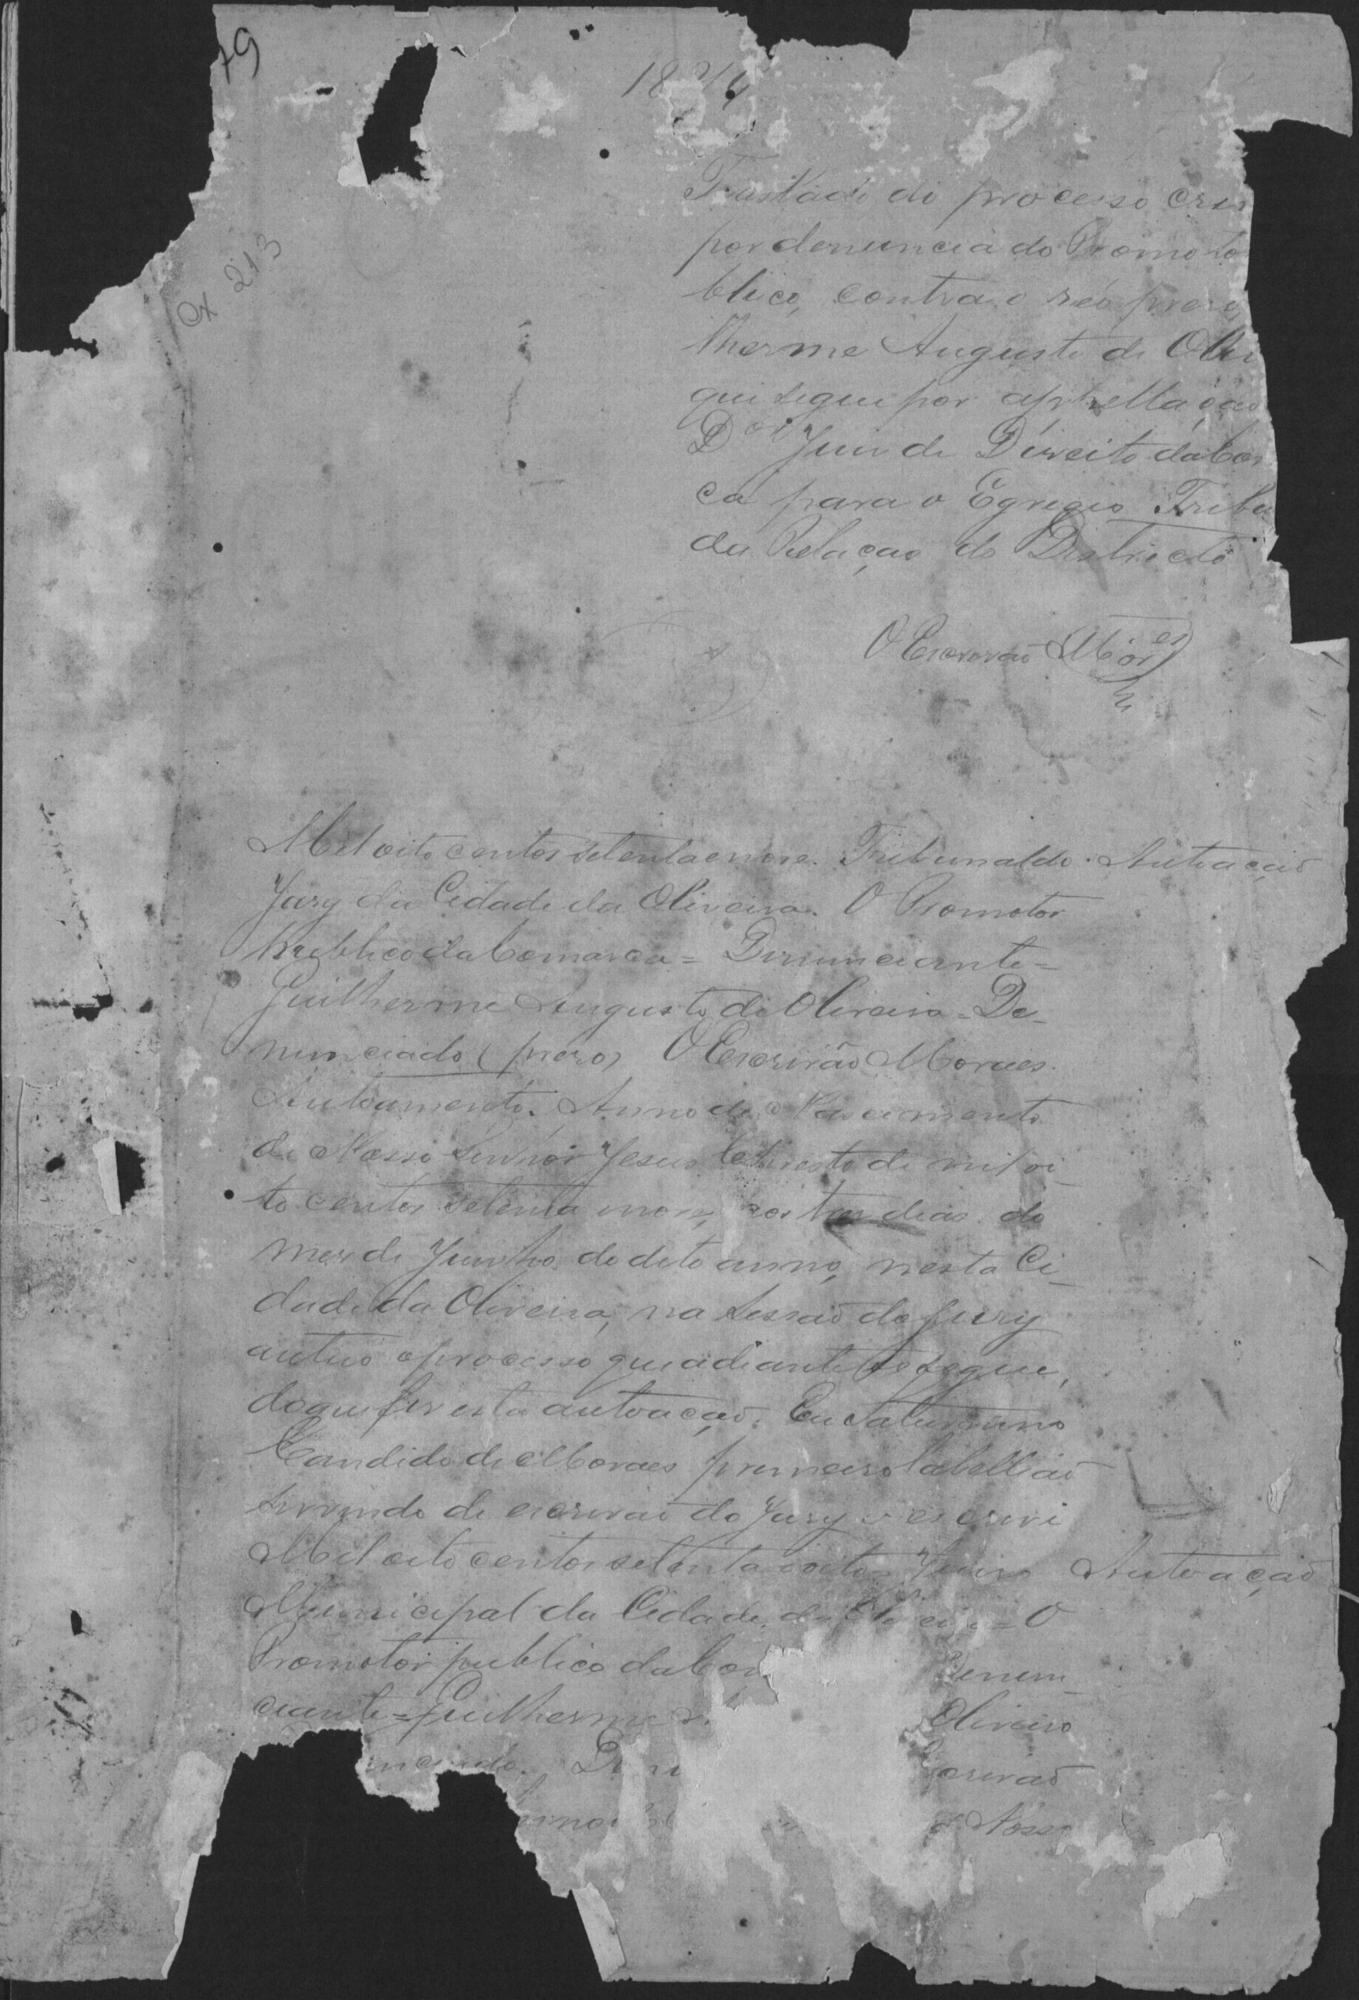 79
18
Cx 213
Traslado do processo cri
por denuncia do Promoto
blico, contra o réo preso,
lherme Augusto de Oliv
que segue por appellação
Dor Juis de Direito da Com
ca para o Egregio Tribu
da Relação do Districto
O Escrivão Moraes
Mil oito centos setenta e nove. Tribunal do Autoação
Jury da Cidade da Oliveira. O Promotor
publico da Comarca = Denunciante =
Guilherme Augusto de Oliveira - De-
nunciado (prezo) O Escrivão Moraes.
Autoamento. Anno do Nascimento
de Nosso Senhor Jesus Christo de mil oi-
to centos setenta e nove, aos tres dias do
mes de Junho do dito anno, nesta Ci-
dade da Oliveira, na sessão do Jury
autuo o processo que adiante se segue,
do que fis esta autoação. Eu Saturnino
Candido de Moraes primeiro tabellião
servindo de escrivão do Jury o escrevi
Mil oito centos setenta e oito. Juiso Autoação
Municipal da Cidade da Oliveira = O
Promotor publico da Com Denun-
ciante = Guilherme Oliveira
nciado. Escrivão
Nosso